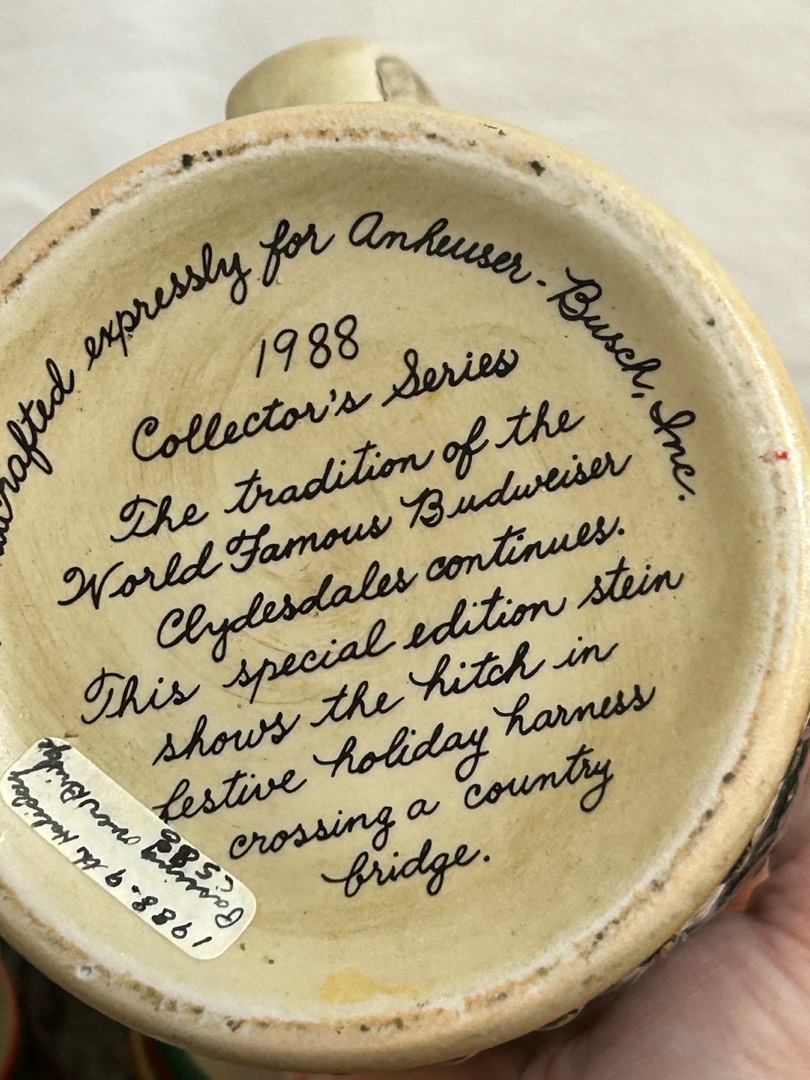 crafted expressly for Anheuser-Busch, Inc.
1988
Collector's Series
The tradition of the
World Famous Budweiser
Clydesdales continues.
This special edition stein
shows the hitch in
festive holiday harness
crossing a country
bridge.
1988-9th Holiday
Passing over Bridge
CS88